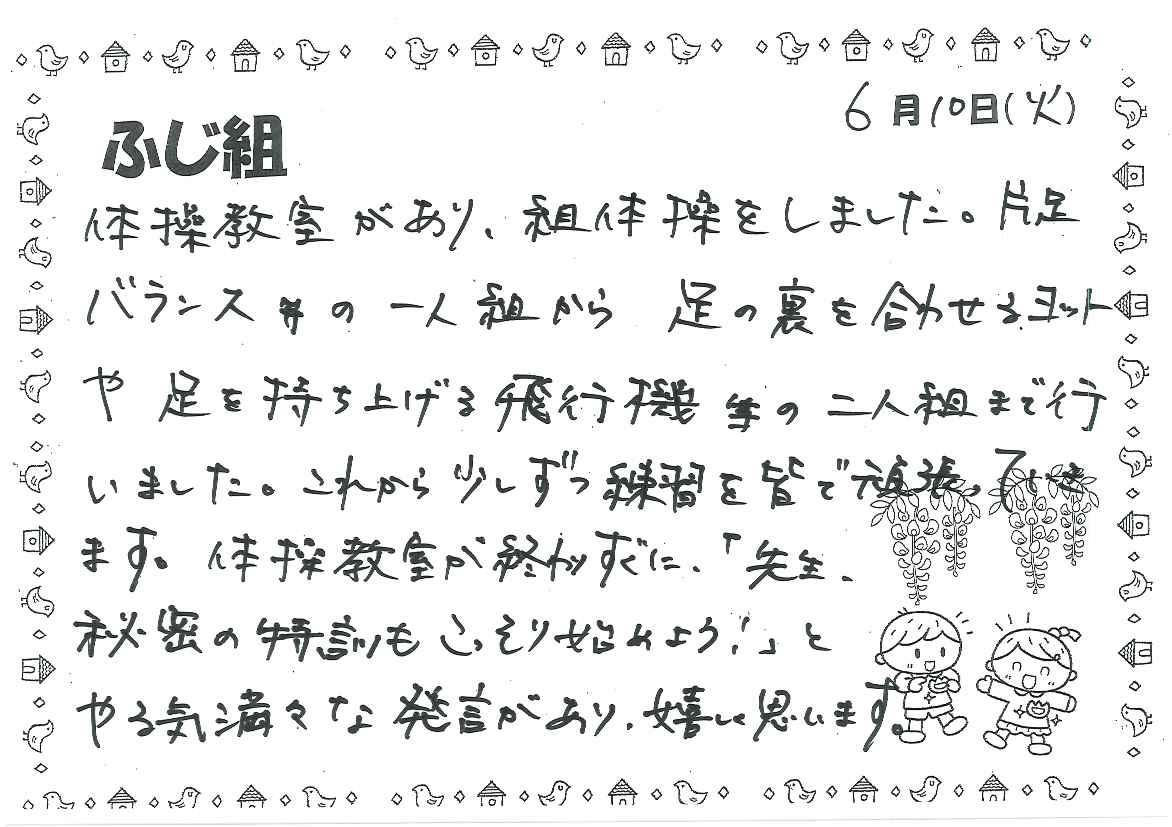 6月10日(火)
ふじ組
体操教室があり、組体操をしました。片足
バランス等の一人組から 足の裏を合わせるヨット
や 足を持ち上げる飛行機等の二人組まで行
いました。これから少しずつ練習を皆で頑張っていき
ます。体操教室が終わりすぐに、「先生、
秘密の特訓もこっそり始めよう!」と
やる気満々な発言があり、嬉しく思います。